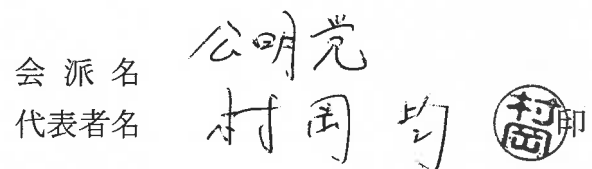 会派名 公明党
代表者名 村岡 均 村岡 印